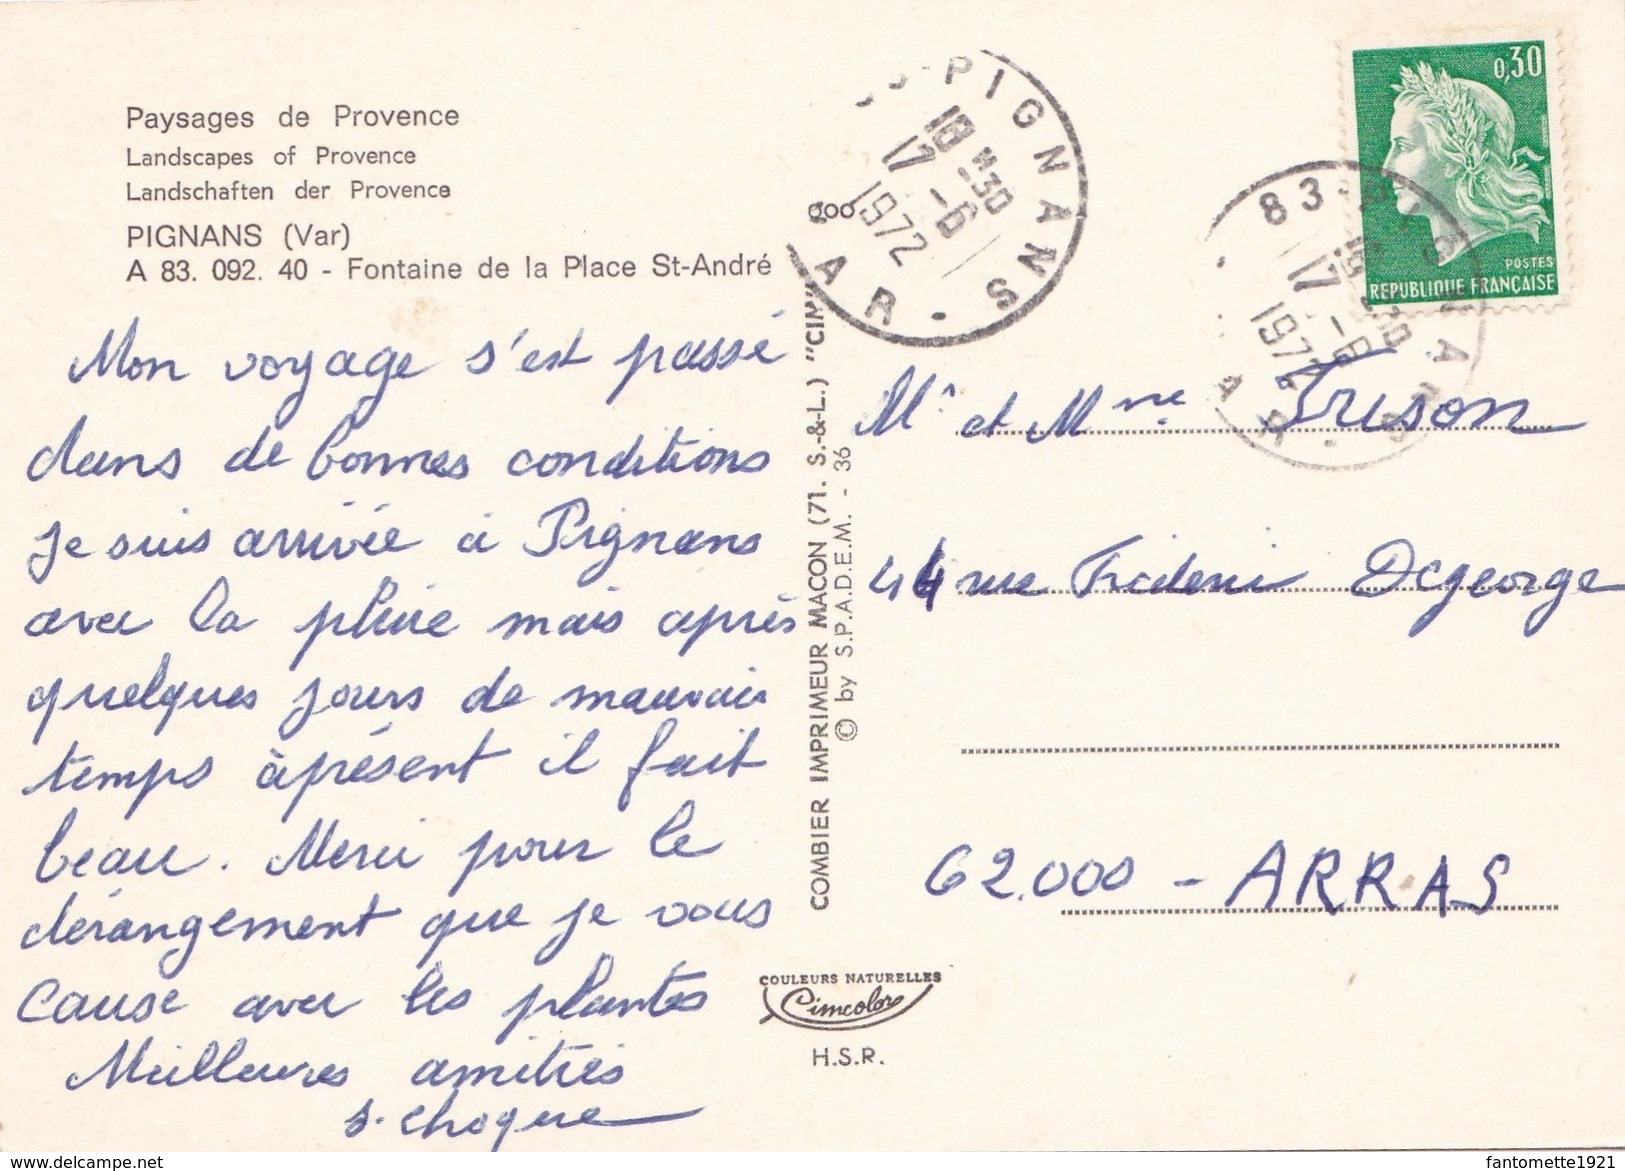 Paysages de Provence
Landscapes of Provence
Landschaften der Provence
PIGNANS (Var)
A 83. 092. 40 - Fontaine de la Place St-André
Mon voyage s'est passé
dans de bonnes conditions
je suis arrivée à Pignans
avec la pluie mais après
quelques jours de mauvais
temps àprésent il fait
beau. Merci pour le
dérangement que je vous
cause avec les plantes
Meilleures amitiés
s. choque
COMBIER IMPRIMEUR MACON (71. S.-&-L.) "CIM"
© by S.P.A.D.E.M. - 36
COULEURS NATURELLES
Cimcolor
H.S.R.
PIGNANS
18 H 30
17 -6
1972
AR
0,30
POSTES
REPUBLIQUE FRANÇAISE
83 PIGNANS
17 -6
1972
AR
Mr et Mme
44 rue Frédéric Degeorge
62.000 - ARRAS
delcampe.net
fantomette1921